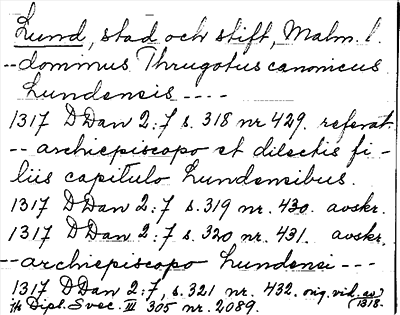 Lund, stad och stift, Malm. l.
-- dominus Thrugotus canonicus
Lundensis ----
1317 DDan 2:7 s. 318 nr 429. referat.
-- archiepiscopo et dilectis fi-
liis capitulo Lundensibus.
1317 DDan 2:7 s. 319 nr. 430. avskr.
1317 DDan 2:7 s. 320 nr. 431. avskr.
-- archiepiscopo Lundensi ---
1317 DDan 2:7, s. 321 nr. 432. orig. vid. av
Dipl. Svec. III 305 nr. 2089. (1318.